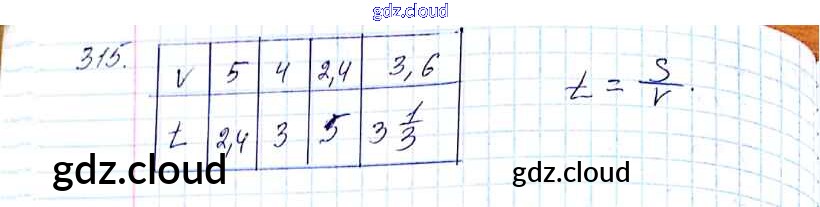 gdz.cloud
315.
v 5 4 2,4 3,6
t = S/v.
t 2,4 3 5 3 1/3
gdz.cloud gdz.cloud